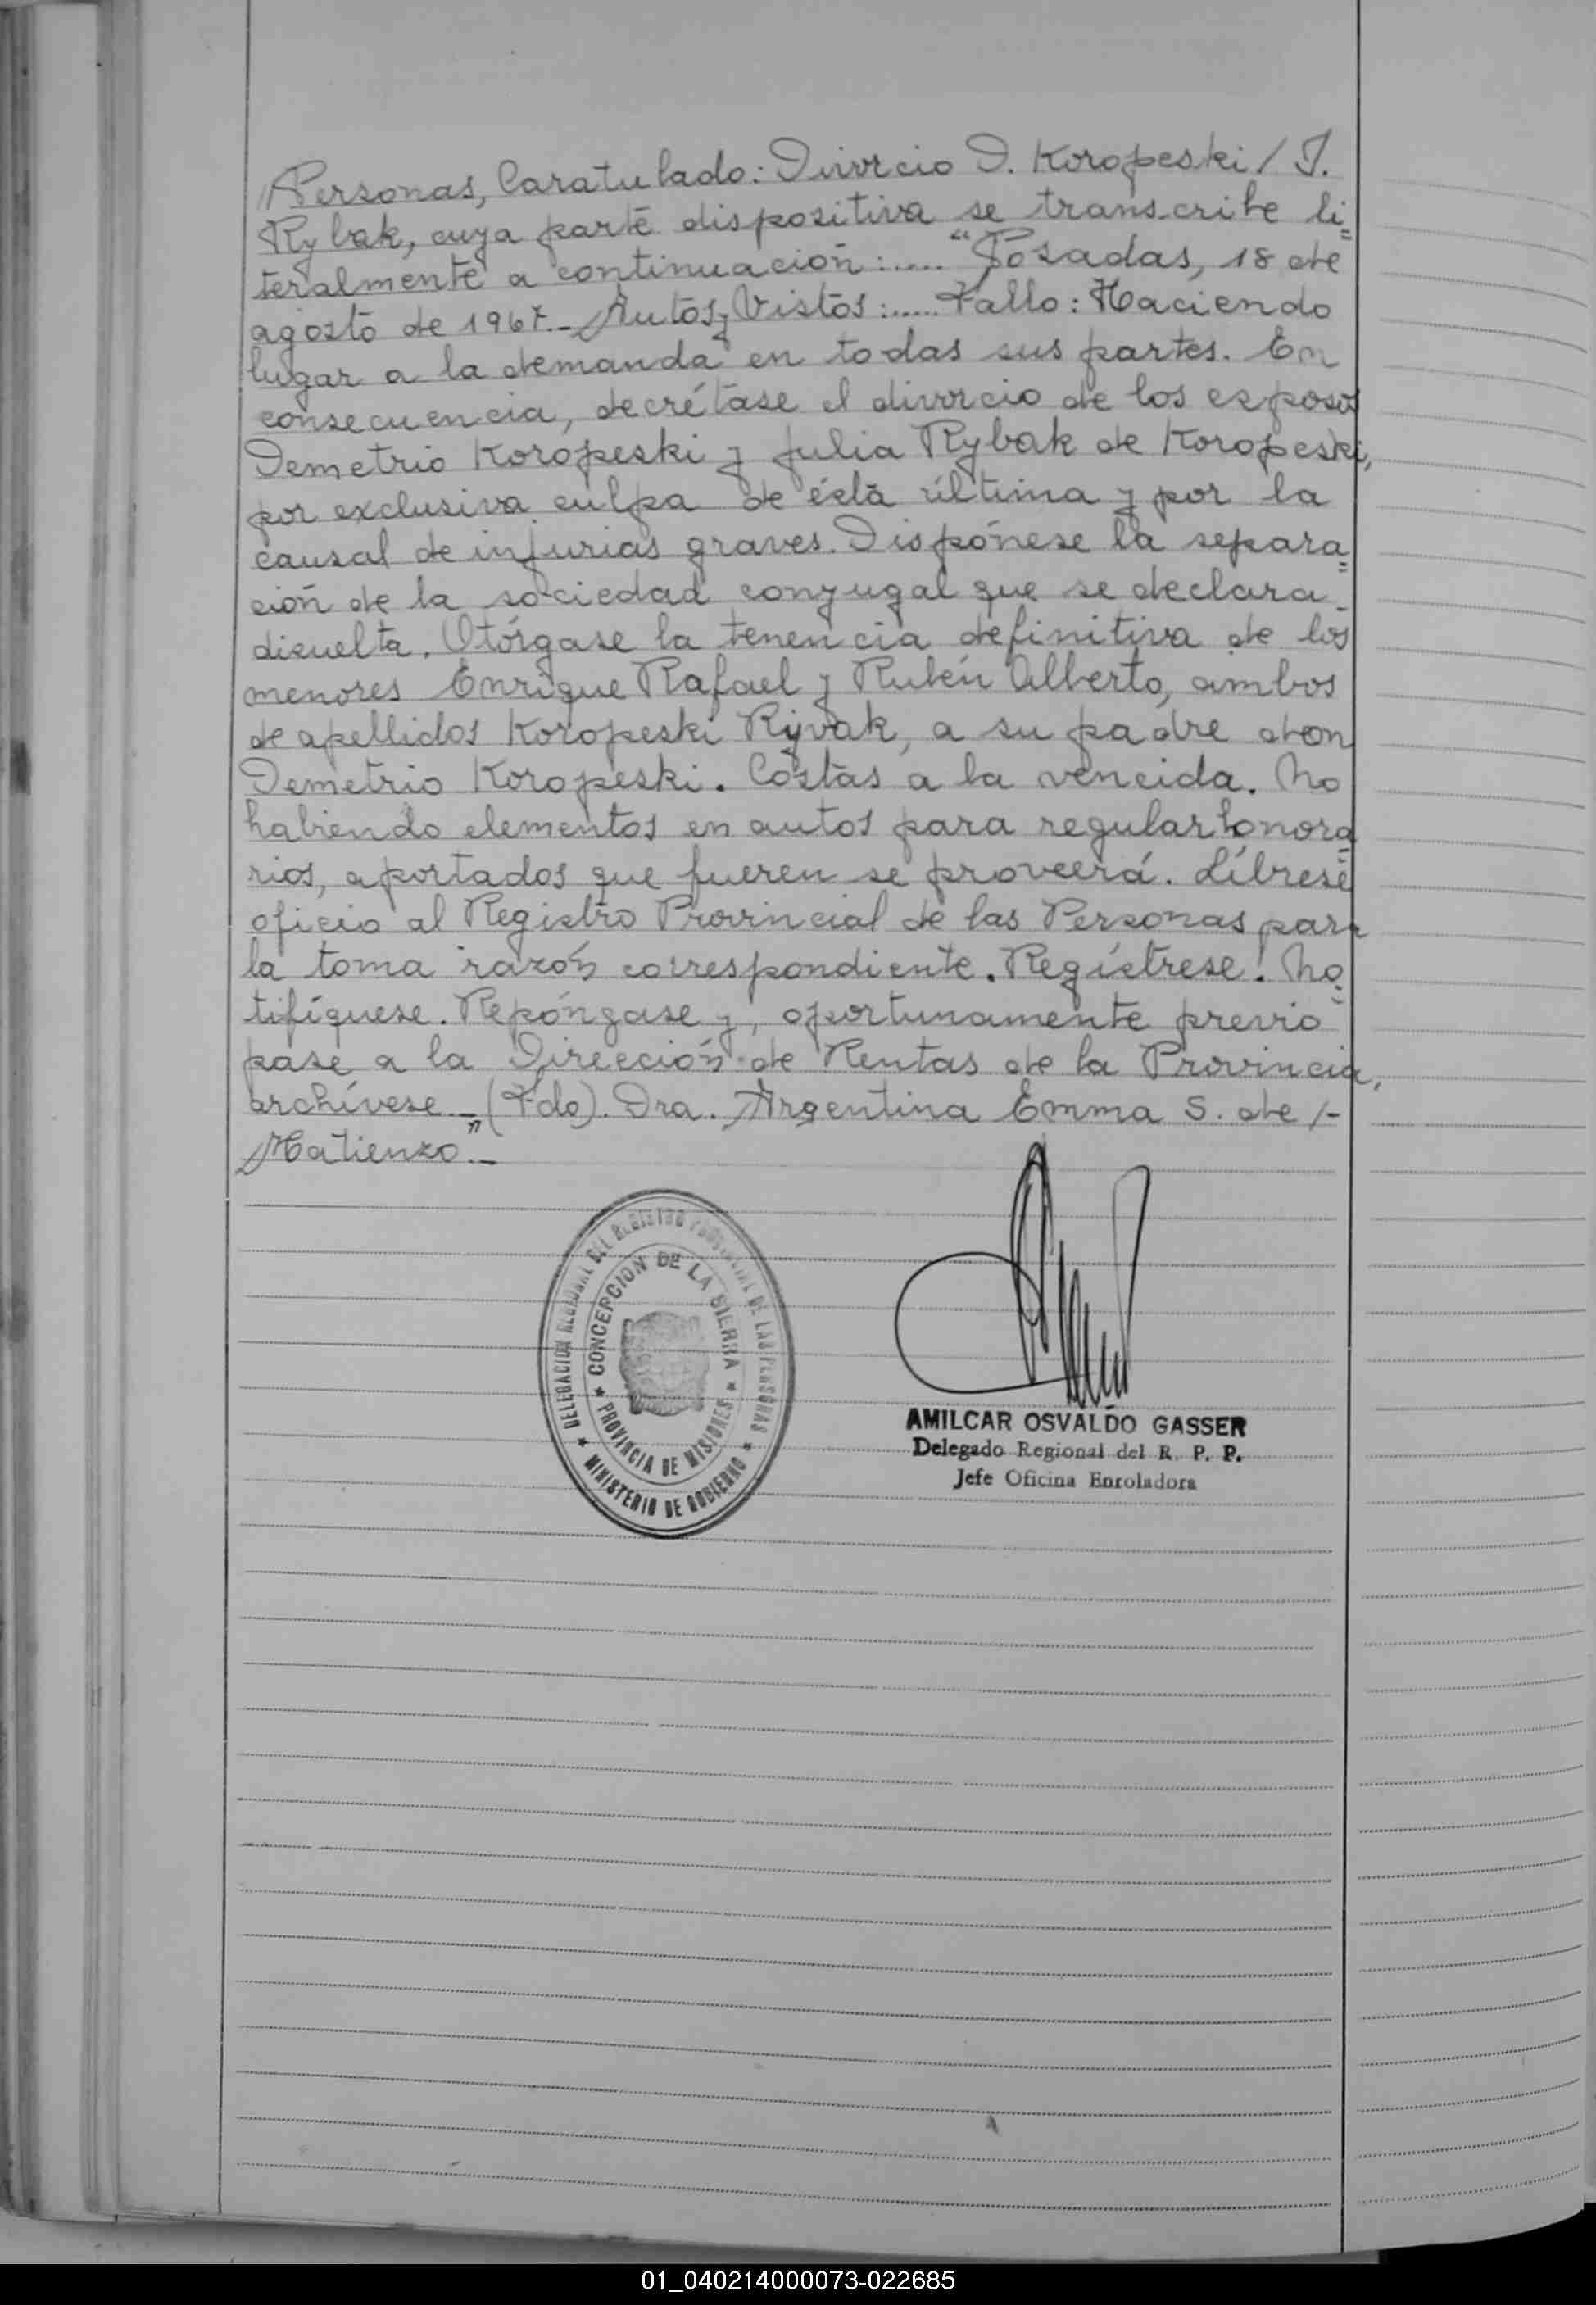 Personas, Caratulado: Divorcio D. Koropeski / J.
Rybak, cuya parte dispositiva se transcribe li=
teralmente a continuación:..... "Posadas, 18 de
agosto de 1967.- Autos y Vistos:..... Fallo: Haciendo
lugar a la demanda en todas sus partes. En
consecuencia, decrétase el divorcio de los esposos
Demetrio Koropeski y Julia Rybak de Koropeski,
por exclusiva culpa de ésta última y por la
causal de injurias graves. Dispónese la separa=
ción de la sociedad conyugal que se declara
disuelta. Otórgase la tenencia definitiva de los
menores Enrique Rafael y Rubén Alberto, ambos
de apellidos Koropeski Rijvak, a su padre don
Demetrio Koropeski. Costas a la vencida. No
habiendo elementos en autos para regular honora=
rios, aportados que fueren se proveerá. Líbrese
oficio al Registro Provincial de las Personas para
la toma razón correspondiente. Regístrese. No=
tifíquese. Repóngase y, oportunamente previo
pase a la Dirección de Rentas de la Provincia,
archívese.- (Fdo). Dra. Argentina Emma S. de /-
Matienzo".-
DELEGACION REGIONAL DEL REGISTRO PROVINCIAL DE LAS PERSONAS
★ MINISTERIO DE GOBIERNO ★
★ CONCEPCION DE LA SIERRA ★
PROVINCIA DE MISIONES
AMILCAR OSVALDO GASSER
Delegado Regional del R. P. P.
Jefe Oficina Enroladora
01_040214000073-022685